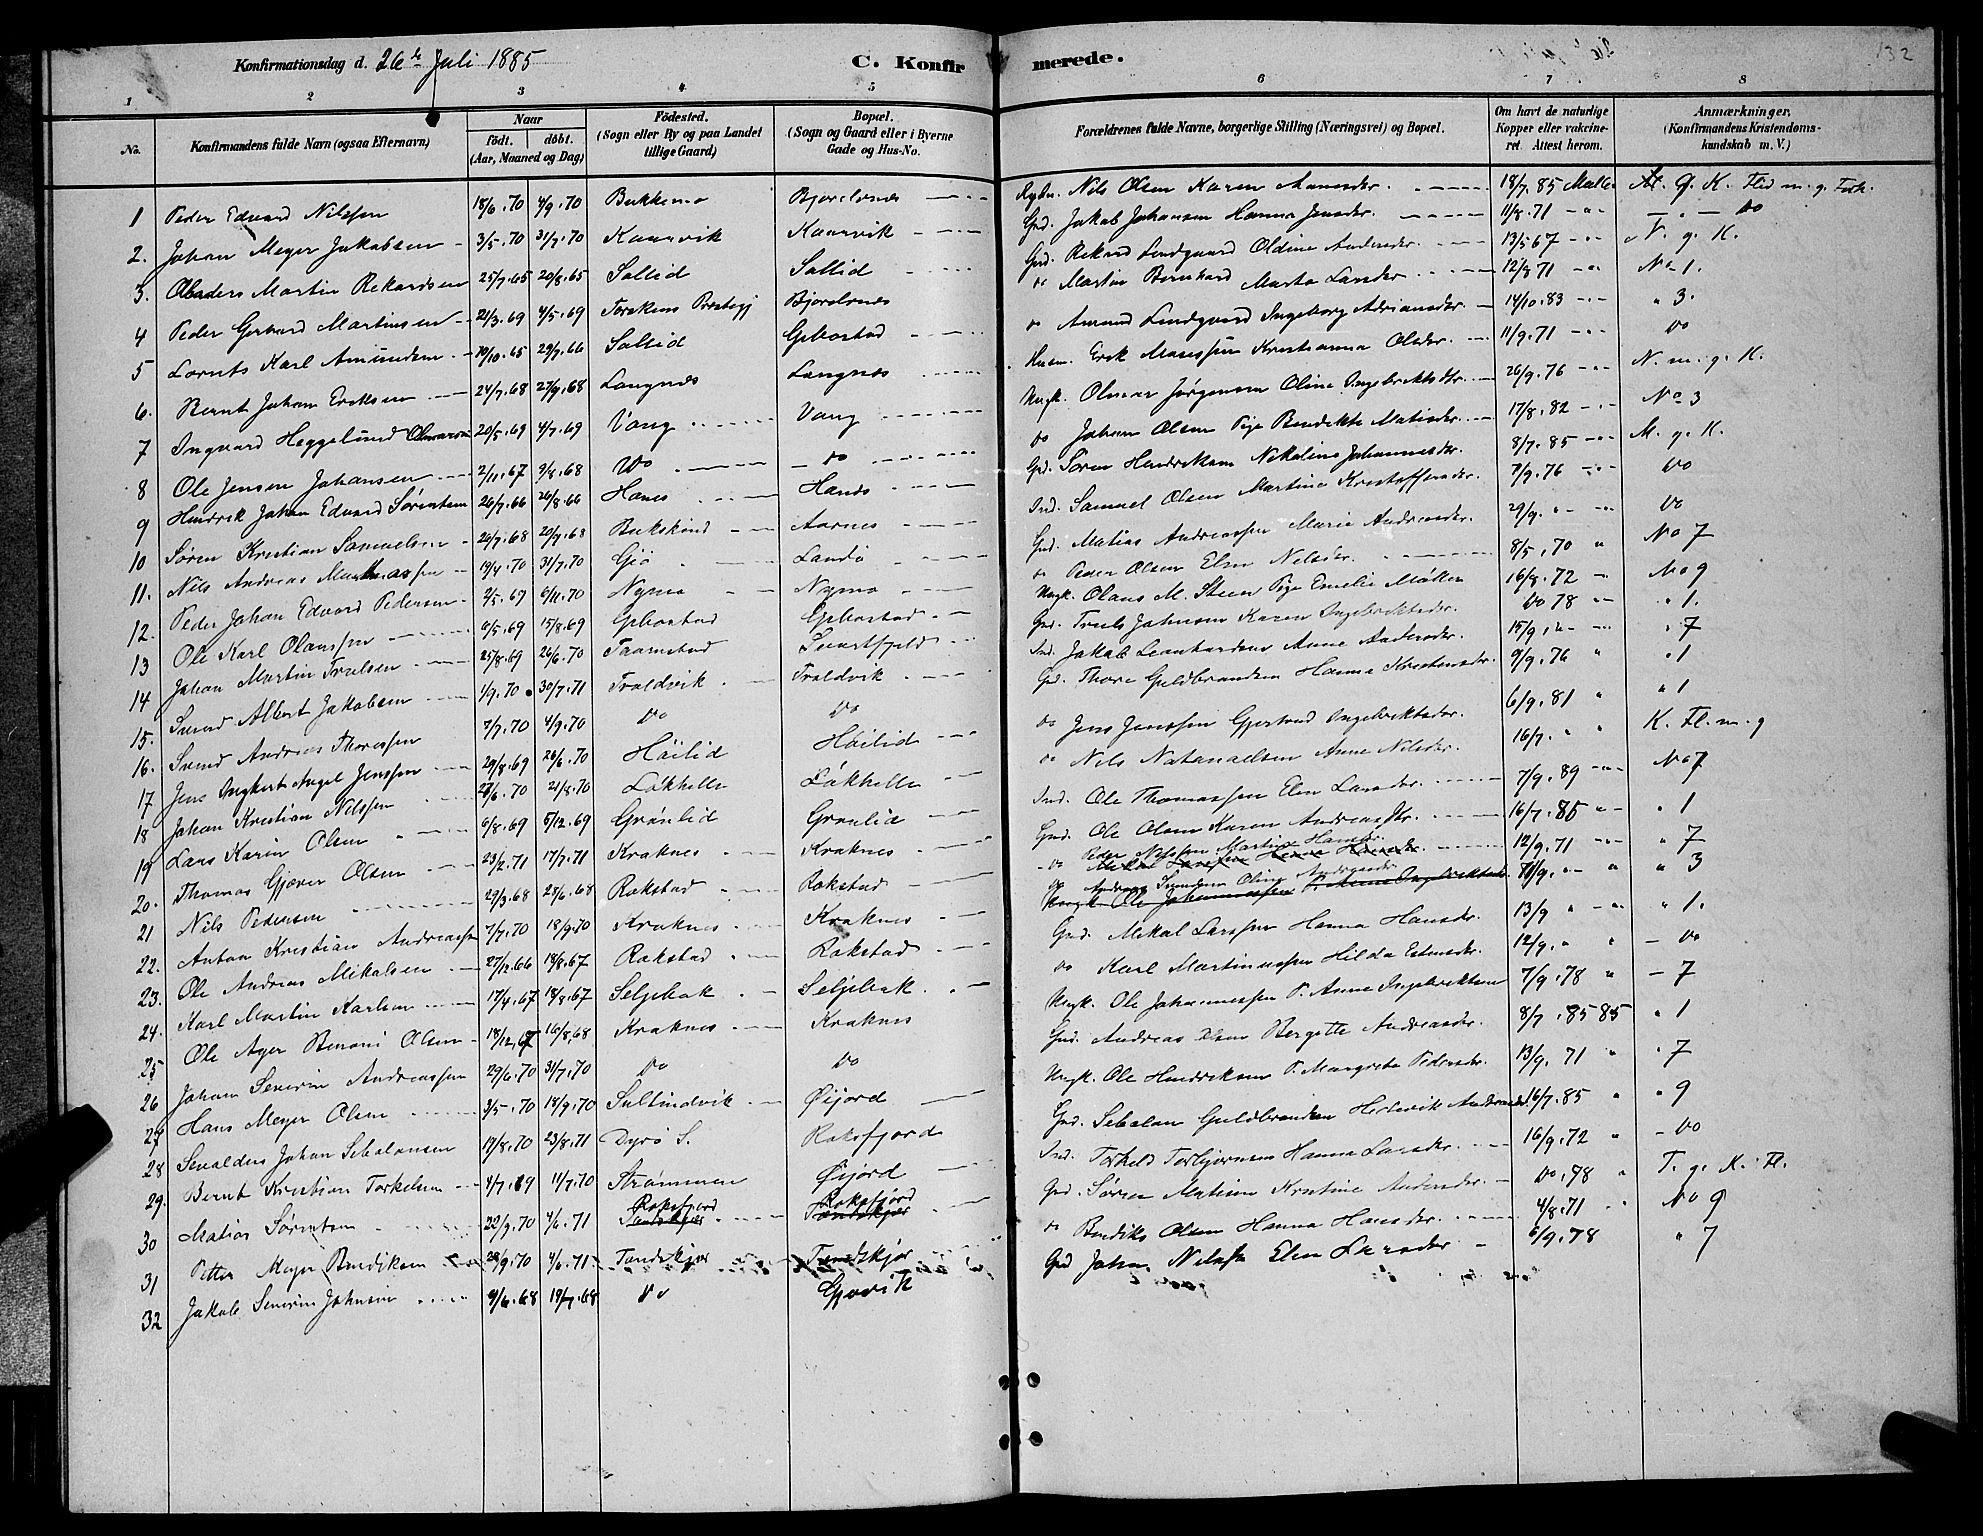 Konfirmationsdag d. 26de Juli 1885 C. Konfir merede. 132
1 2 3 4 5 6 7 8
No. Konfirmandens fulde Navn (ogsaa Efternavn) Naar født. døbt. (Aar, Maaned og Dag) Fødested. (Sogn eller By og paa Landet tillige Gaard) Bopæl. (Sogn og Gaard eller i Byerne Gade og Hus-No. Forældrenes fulde Navne, borgerlige Stilling (Næringsvei) og Bopæl. Om havt de naturlige Kopper eller vakcineret. Attest herom. Anmærkninger, (Konfirmandens Kristendomskundskab m. V.)
1 Peder Edvard Nilssen 18/6.70 4/9.70 Bukkemo Bjorelvnes Nils Olsen Karen 18/7.85 M. g. K. Flid m. g. Forh.
2. Johan Meyer Jakobsen 3/5.70 31/7.70 Kaarvik Kaarvik Grd. Jakob Johansen Hanna Jensdtr. 11/8.71 do
3. Anders Martin Rekardsen 25/7.65 20/8.65 Sollid Sollid Grd. Rekard Lindgaard Oldine Andersdtr. 13/5 67 N. g. K.
4 Peder Gerhard Martinsen 21/3.69 4/5.69 Torskens Prestegj Bjorelvnes do Martin Bernhard Marta Larsdtr. 12/8 71 No 1.
5 Lornts Karl Amundsen 10/10.65 29/7.66 Sollid Gebostad do Amund Lindgaard Ingeborg Adriansdtr. 14/10.83 " 3.
6. Bernt Johan Eriksen 24/7.68 27/9.68 Langnes Langnes Husm. Erik Kristianna Olsdtr. 11/9.71 do
7 Ingvard Heggelund Olmarsen 20/5.69 4/7.69 Vang Vang Ungk. Olmar Jørgensen Oline Ingebriktsdtr. 26/9.76 N. m. g. K.
8 Ole Jensen Johansen 2/11.67 3/4.68 do do do Johan Olsen Pige Bendikte Matisdtr. 17/8.82 No 3
9 Hendrik Johan Edvard Sørentsen 26/7.66 26/8.66 Hanes Hanes Grd. Søren Hendriksen Nikoline Johannesdtr. 8/7.85 M. g. K.
10 Søren Kristian Samuelsen 26/7.68 20/9.68 Bukskind Aarnes Ind. Samuel Olsen Martine Kristoffersdtr. 7/9.76 do
11. Nils Andreas Mathiassen 19/4.70 31/7.70 Gjø Landø Grd. Matias Andreassen Marie Andreasdtr. 29/9. " do
12. Peder Johan Edvard Pedersen 2/5.67 6/11.70 Nymo Nymo do Peder Olsen Elen Nilsdtr. 8/5.70 " No 7
13 Ole Karl Olaussen 6/5.69 15/8.69 Gebostad Gebostad Ungk. Olaus M. Steen Pige Emelie Møller 16/8.72 No 9
14 Johan Martin Trulsen 25/8.69 26/6.70 Taarnstad Svartfjeld Grd. Truls Johnsen Karen Ingebriktsdtr. do 78 " 1.
15. Svend Albert Jakobsen 1/9.70 30/7.71 Troldvik Troldvik Ind. Jakob Leonhardsen Anne Andersdtr. 15/9. " " 7
16. Svend Andreas Thoressen 7/7.70 4/9.70 do do Grd. Thore Guldbrandsen Hanna Kristensdtr. 9/9.76 " " 1
17 Jens Ingbert Angel Jenssen 29/8.69 26/6.70 Høilid Høilid do Jens Jenssen Gjertrud Ingebriktsdtr. 6/9.81 " " 1
18 Johan Kristian Nilssen 2/6.70 21/8.70 Løkhelle Løkhelle do Nils Natanaelsen Anne Nilsdtr. 16/7. " " K. Fl. m. g
19 Lars Karin Olsen 6/8.69 5/12.69 Grønlid Grønlid Ind. Ole Thomassen Elen Larsdtr. 7/9.89 No 7
20. Thomas Gjæver Olsen 23/2.71 17/7.71 Kraknes Kraknes Grd. Ole Olsen Karen Andreasdtr. 16/7.85 " 1
21 Nils Pedersen 29/3.68 28/6.68 Rokstad Rokstad do Peder Nilssen Martine Hansdtr. 12/9.71 " 7
22. Anton Kristian Andreassen 7/7.70 18/9.70 Kraknes Kraknes do Andreas Oline Andreasdtr 11/9. " " 3
Ungk. Ole Johannessen P. Anne Ingebriktsdtr
23. Ole Andreas Mikalsen 27/12.66 18/8.67 Rokstad Rokstad Grd. Mekal Larssen Hanna Hansdtr. 13/9 " " 1.
24. Karl Martin Karlsen 17/4.67 18/8.67 Seljebak Seljebak do Karl Martinussen Hilda Estensdtr. 12/9. " do
25 Ole Ager Benoni Olsen 18/12.67 16/8.68 Kraknes Kraknes Ungk. Ole Johannessen P. Anne Ingebriktsen 7/9.78 " 7
26 Johan Severin Andreassen 29/6.70 31/7.70 do do Grd. Andreas Olsen Bergette Andreasdtr. 8/7.85 85 " 1
27 Hans Meyer Olsen 3/5.70 18/9.70 Sultindvik Øijord Ungk. Ole Hendriksen P. Margrete Pedersdtr. 13/9.71 " 7
28 Sevalders Johan Sebolansen 19/8.70 23/8.71 Dyrø S. Roksfjord Grd. Sebolan Guldbrandsen Hedevik Andersdtr 16/7.85 " " 9
29. Bernt Kristian Torkelsen 4/7.69 11/7.70 Strømmen Øijord Ind. Torkeld Torbjørnsen Hanna Larsdtr. 16/9.72 " do
30 Matias Sørentsen 22/9.70 4/6.71 Roksfjord Tandskjær Roksfjord Tandskjær Grd. Søren Matisen Kristine Andersdtr. do.78 T. g. K. Fl.
31 Petter Meyer Bendiksen 28/9.70 4/6.71 Tandskjær Tandskjær do Bendiks Olsen Hanna Hansdtr. 4/8.71 No 9
32 Jakob Severin Johnsen 9/6.68 19/7.68 do Gjøvik Grd Johan Nilsen Elen Larsdtr 6/9.78 " 7